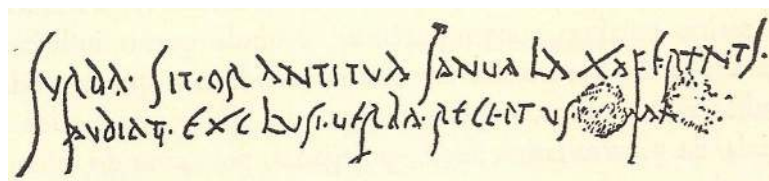 SVRDA· SIT· ORANTI TVA IANVA LAXA FERENTI·
AVDIAT· EXCLVSI· VERBA· RECEPTVS·